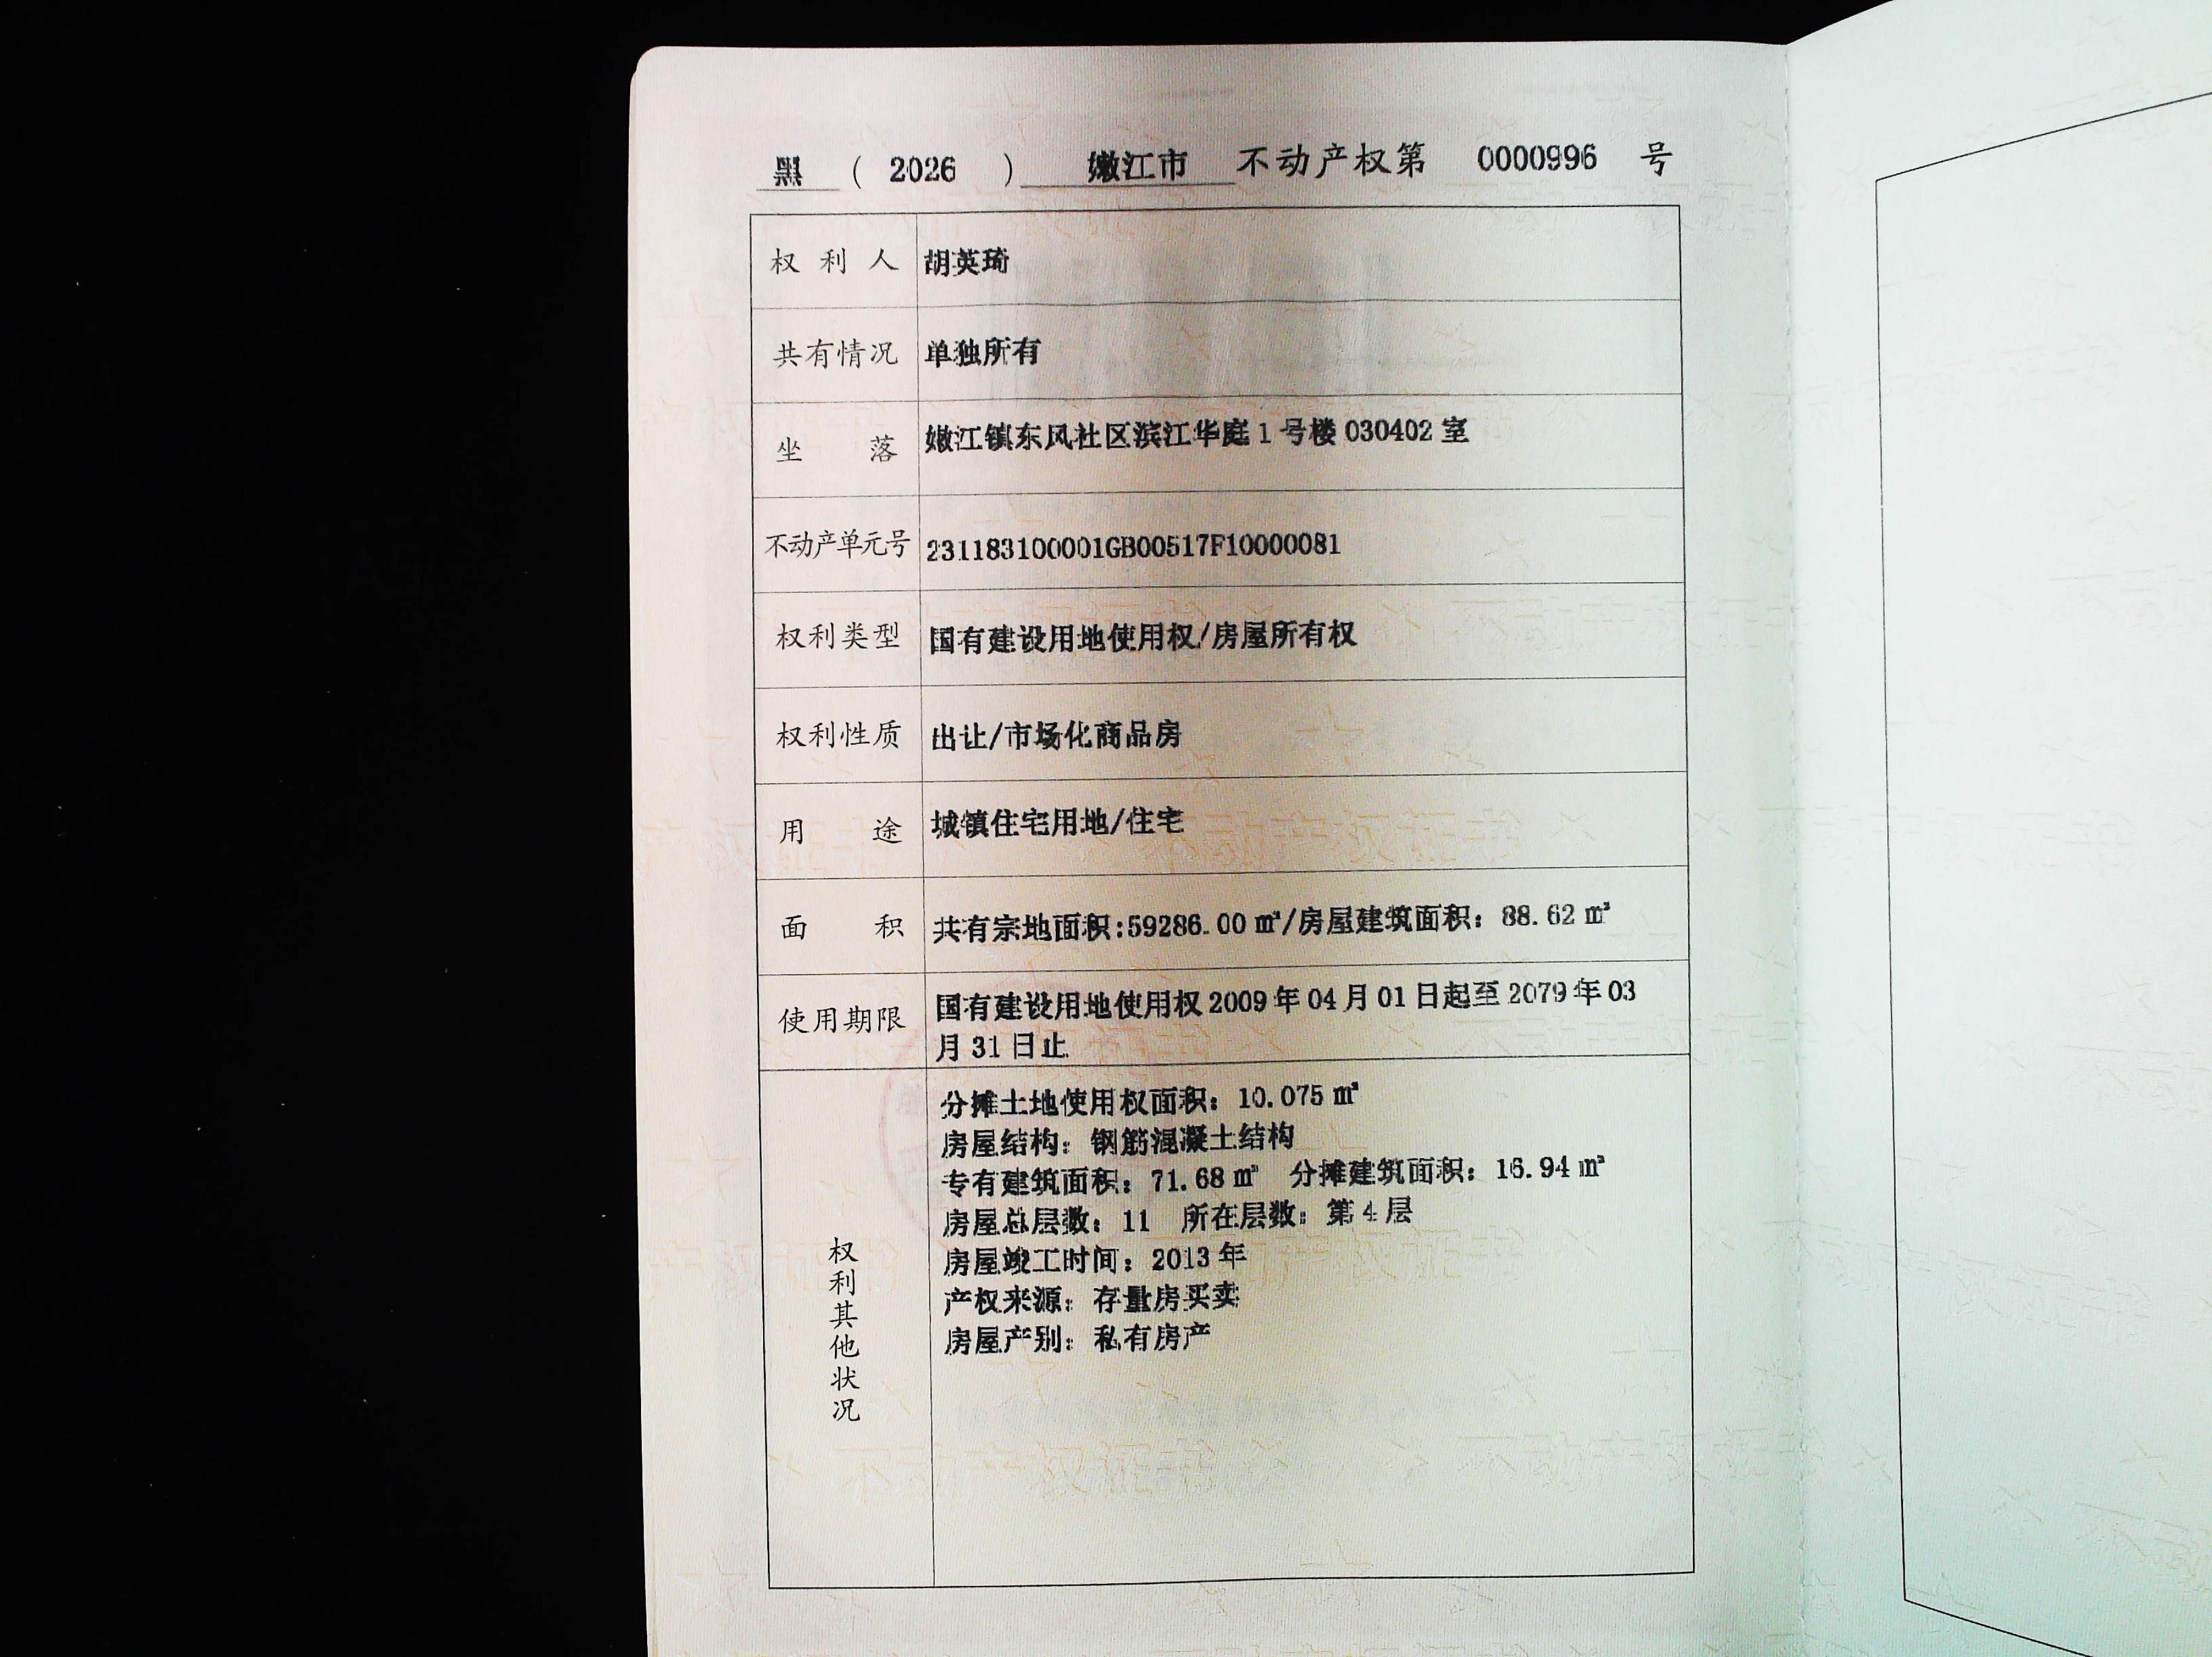 黑 ( 2026 ) 嫩江市 不动产权第 0000996 号
权利人 胡英琦
共有情况 单独所有
坐落 嫩江镇东风社区滨江华庭1号楼030402室
不动产单元号 231183100001GB00517F10000081
权利类型 国有建设用地使用权/房屋所有权
权利性质 出让/市场化商品房
用途 城镇住宅用地/住宅
面积 共有宗地面积:59286.00㎡/房屋建筑面积：88.62㎡
使用期限 国有建设用地使用权2009年04月01日起至2079年03
月31日止
权利其他状况
分摊土地使用权面积：10.075㎡
房屋结构：钢筋混凝土结构
专有建筑面积：71.68㎡ 分摊建筑面积：16.94㎡
房屋总层数：11 所在层数：第4层
房屋竣工时间：2013年
产权来源：存量房买卖
房屋产别：私有房产